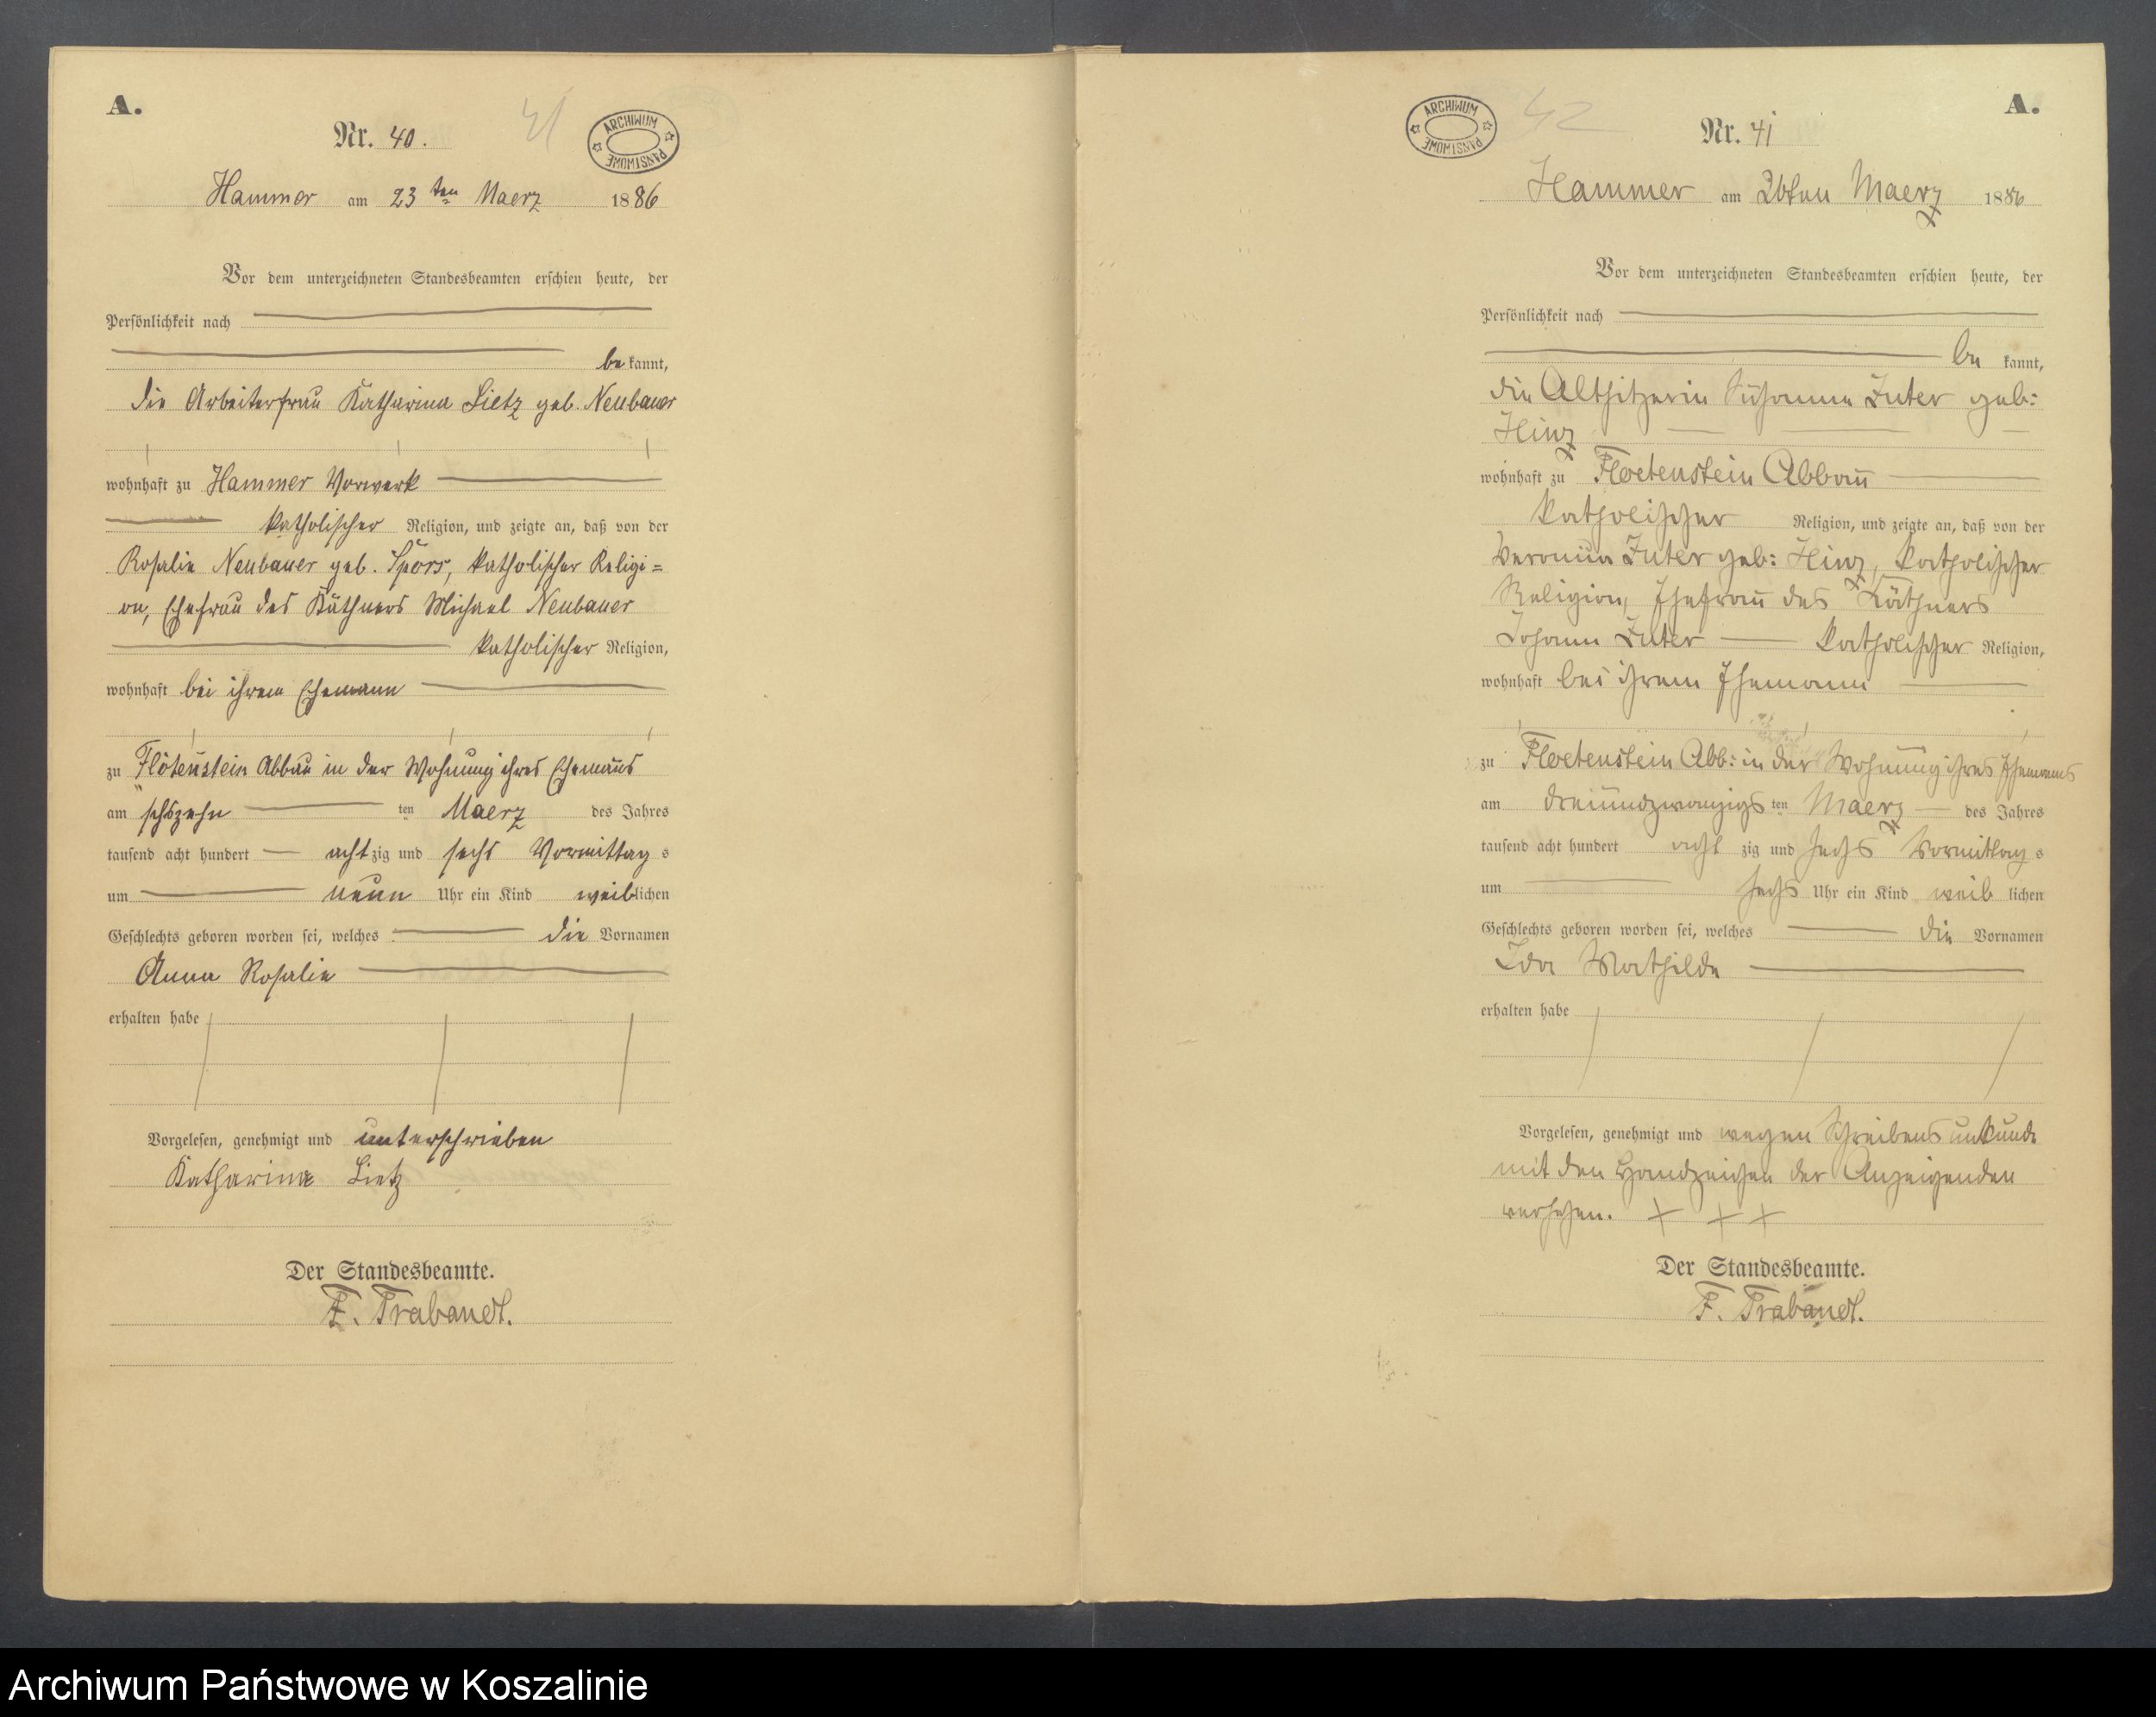 A.
Nr. 40.
41
ARCHIWUM PAŃSTWOWE
Hammer am 23ten Maerz 1886
Vor dem unterzeichneten Standesbeamten erschien heute, der
Persönlichkeit nach
bekannt,
die Arbeiterfrau Katharina Lietz geb. Neubauer
wohnhaft zu Hammer Vorwerk
katholischer Religion, und zeigte an, daß von der
Rosalie Neubauer geb. Spors, katholischer Religi=
on, Ehefrau des Käthners Michael Neubauer
katholischer Religion,
wohnhaft bei ihrem Ehemann
zu Flötenstein Abbau in der Wohnung ihres Ehemanns
am sechszehn ten Maerz des Jahres
tausend acht hundert achtzig und sechs Vormittags
um neun Uhr ein Kind weiblichen
Geschlechts geboren worden sei, welches die Vornamen
Anna Rosalie
erhalten habe
Vorgelesen, genehmigt und unterschrieben
Katharina Lietz
Der Standesbeamte.
F. Trabandt.
A.
Nr. 41
42
ARCHIWUM PAŃSTWOWE
Hammer am 26ten Maerz 1886
Vor dem unterzeichneten Standesbeamten erschien heute, der
Persönlichkeit nach
be kannt,
die Altsitzerin Susanna Zuter geb:
Hinz
wohnhaft zu Floetenstein Abbau
katholischer Religion, und zeigte an, daß von der
Veronika Zuter geb: Hinz, katholischer
Religion, Ehefrau des Käthners
Johann Zuter katholischer Religion,
wohnhaft bei ihrem Ehemann
zu Floetenstein Abb: in der Wohnung ihres Ehemanns
am dreiundzwanzigs ten Maerz des Jahres
tausend acht hundert acht zig und sechs Vormittag s
um sechs Uhr ein Kind weib lichen
Geschlechts geboren worden sei, welches die Vornamen
Ida Mathilde
erhalten habe
Vorgelesen, genehmigt und wegen Schreibensunkunde
mit den Handzeichen der Anzeigenden
versehen. + + +
Der Standesbeamte.
F. Trabandt.
Archiwum Państwowe w Koszalinie